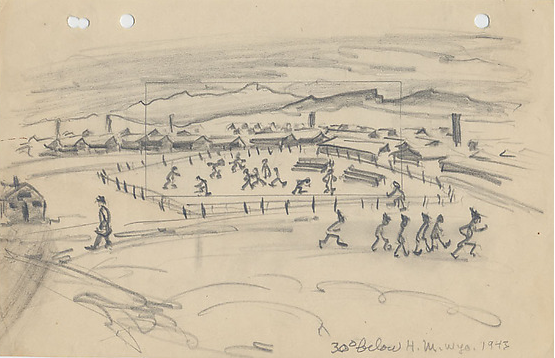 30° below H. M. Wyo. 1943